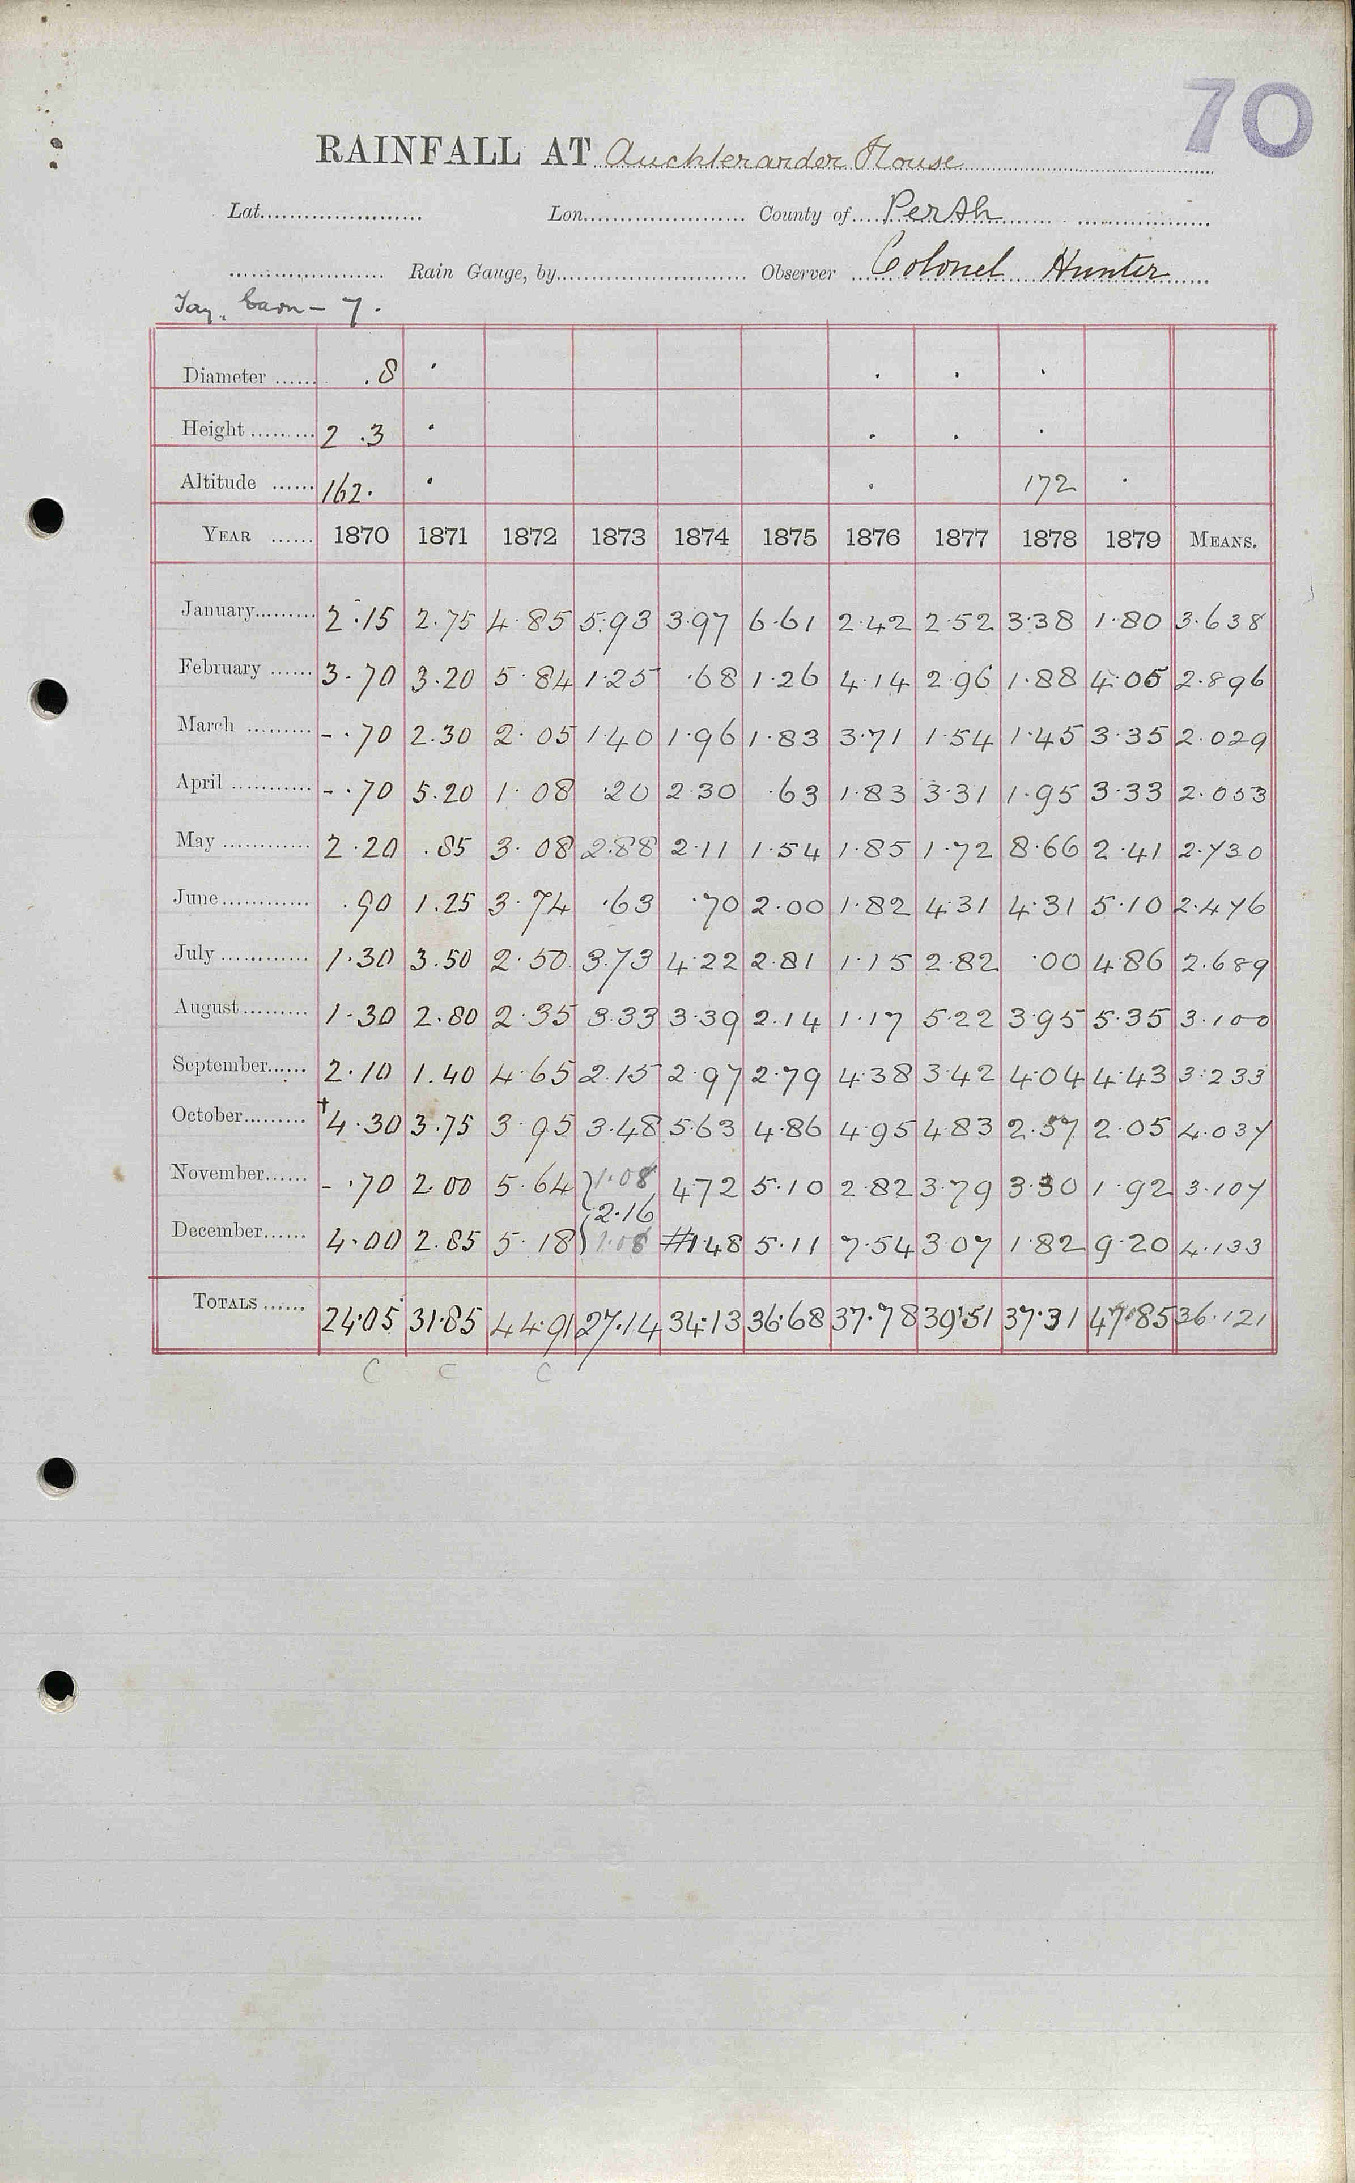 70
RAINFALL AT Auchterarder House
Lat. Lon. County of Perth
Rain Gauge, by Observer Colonel Hunter
Tay. Earn - 7.
Diameter .8
Height 2 .3
Altitude 162. 172
YEAR 1870 1871 1872 1873 1874 1875 1876 1877 1878 1879 MEANS.
January 2.15 2.75 4.85 5.93 3.97 6.61 2.42 2.52 3.38 1.80 3.638
February 3.70 3.20 5.84 1.25 .68 1.26 4.14 2.96 1.88 4.05 2.896
March - .70 2.30 2.05 1.40 1.96 1.83 3.71 1.54 1.45 3.35 2.029
April - .70 5.20 1.08 .20 2.30 .63 1.83 3.31 1.95 3.33 2.053
May 2.20 .85 3.08 2.88 2.11 1.54 1.85 1.72 8.66 2.41 2.730
June .90 1.25 3.74 .63 .70 2.00 1.82 4.31 4.31 5.10 2.476
July 1.30 3.50 2.50 3.73 4.22 2.81 1.15 2.82 .00 4.86 2.689
August 1.30 2.80 2.35 3.33 3.39 2.14 1.17 5.22 3.95 5.35 3.100
September 2.10 1.40 4.65 2.15 2.97 2.79 4.38 3.42 4.04 4.43 3.233
October †4.30 3.75 3.95 3.48 5.63 4.86 4.95 4.83 2.57 2.05 4.037
November - .70 2.00 5.64 1.08 4.72 5.10 2.82 3.79 3.30 1.92 3.107
2.16
December 4.00 2.85 5.18 1.08 #1.48 5.11 7.54 3.07 1.82 9.20 4.133
TOTALS 24.05 31.85 44.91 27.14 34.13 36.68 37.78 39.51 37.31 47.85 36.121
C C C